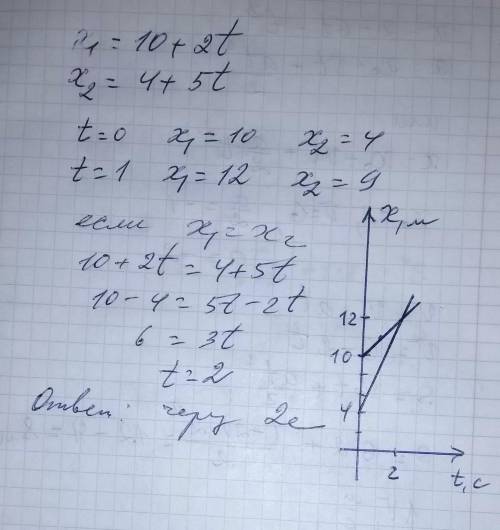 x₁ = 10 + 2t
x₂ = 4 + 5t
t=0 x₁ = 10 x₂ = 4
t=1 x₁ = 12 x₂ = 9
если x₁ = x₂
10 + 2t = 4 + 5t
10 - 4 = 5t - 2t
6 = 3t
t = 2
Ответ: через 2с
x, м
12
10
4
2
t, с